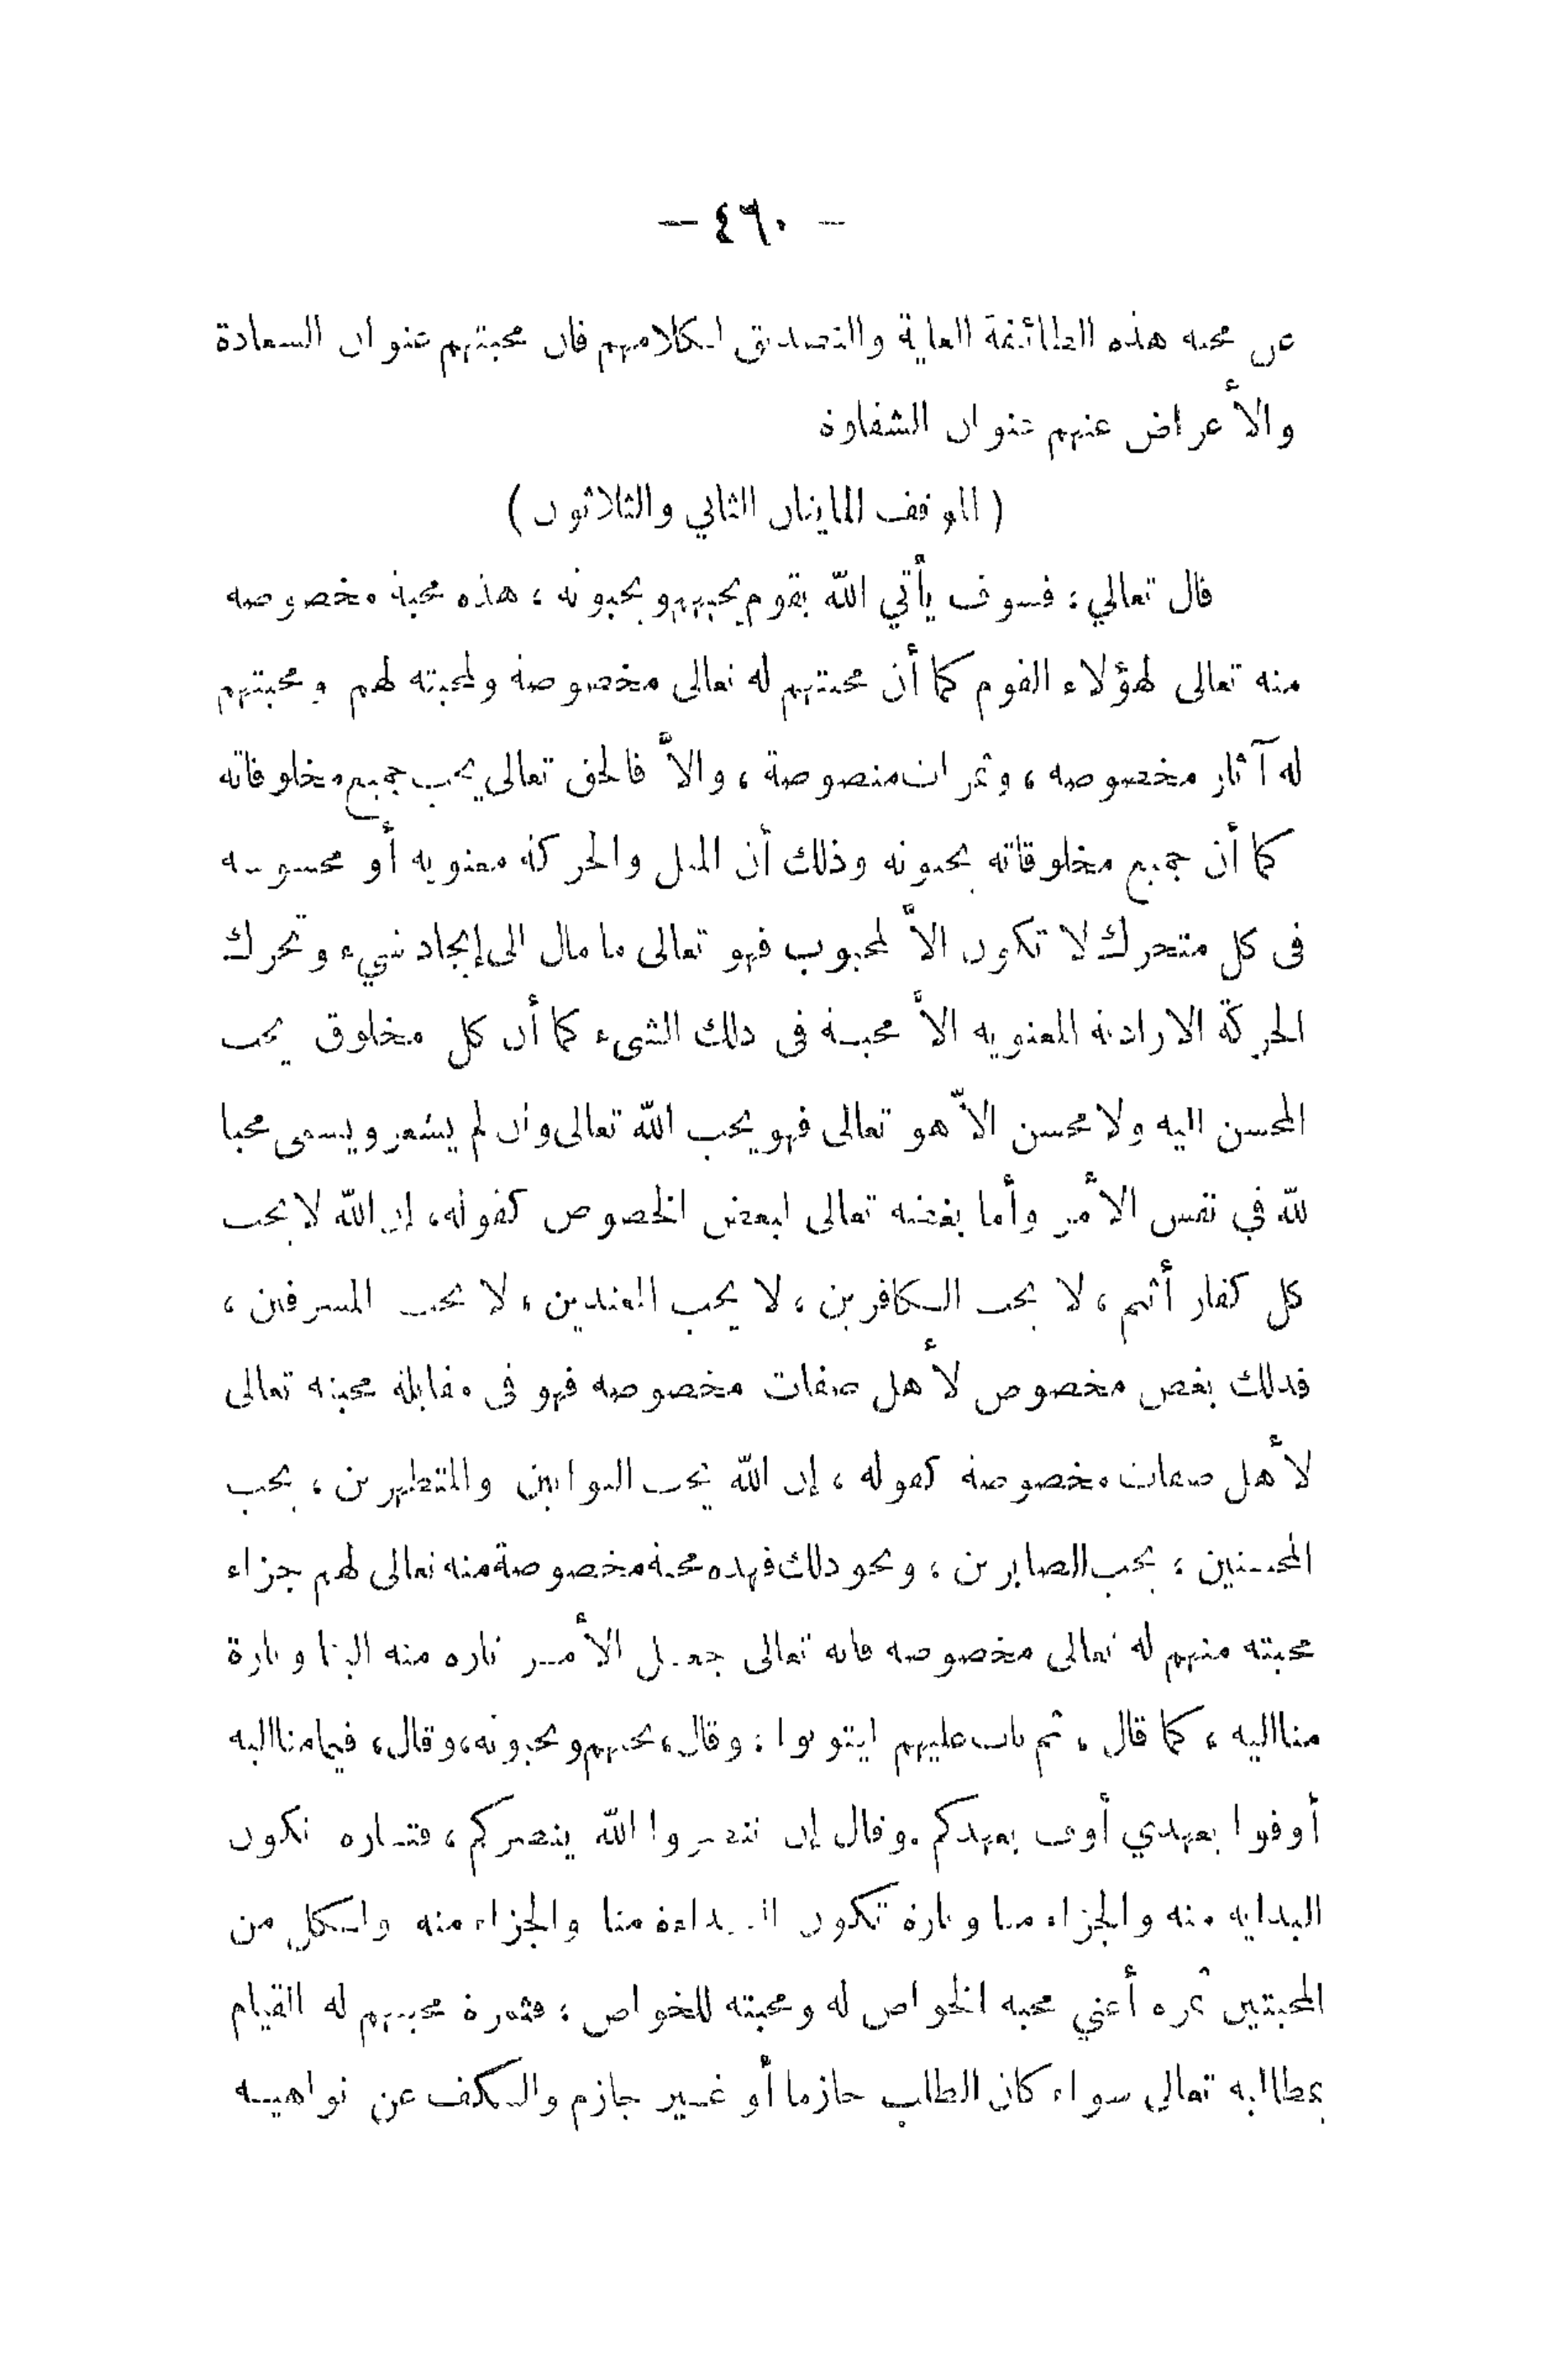 — ٤٦٠ —
عن محبة هذه الطائفة العلية والتصديق لكلامهم فان محبتهم عنوان السعادة
والأعراض عنهم عنوان الشقاوة
( الموقف المايتان الثاني والثلاثون )
قال تعالي : فسوف يأتي الله بقوم يحبهم ويحبونه ، هذه محبة مخصوصة
منه تعالى لهؤلاء القوم كما أن محبتهم له تعالى مخصوصة ولمحبته لهم ومحبتهم
له آثار مخصوصة ، وثمرات منصوصة ، والاّ فالحق تعالى يحب جميع مخلوقاته
كما أن جميع مخلوقاته يحبونه وذلك أن الميل والحركة معنوية أو محسوسة
فى كل متحرك لا تكون الاّ لمحبوب فهو تعالى ما مال الى إيجاد شيء وتحرك
الحركة الارادية المعنوية الاّ محبة فى ذلك الشىء كما أن كل مخلوق يحب
المحسن اليه ولا محسن الاّ هو تعالى فهو يحب الله تعالى وان لم يشعر ويسمى محبا
لله في نفس الأمر وأما بغضه تعالى لبعض الخصوص كقوله، إن الله لا يحب
كل كفار أثيم ، لا يحب الكافرين ، لا يحب المعتدين ، لا يحب المسرفين ،
فذلك بغض مخصوص لأهل صفات مخصوصة فهو فى مقابلة محبته تعالى
لأهل صفات مخصوصة كقوله ، إن الله يحب التوابين والمتطهرين ، يحب
المحسنين ، يحب الصابرين ، ونحو ذلك فهذه محبة مخصوصة منه تعالى لهم جزاء
محبته منهم له تعالى مخصوصة فانه تعالى جعل الأمر تارة منه الينا وتارة
منا اليه ، كما قال ، ثم تاب عليهم ليتوبوا ، وقال، يحبهم ويحبونه، وقال، فيما منا اليه
أوفوا بعهدي أوف بعهدكم . وقال إن تنصروا الله ينصركم ، فتاره تكون
البداية منه والجزاء منا وتارة تكون البداءة منا والجزاء منه ولكل من
المحبتين ثمرة أعني محبة الخواص له ومحبته للخواص ، فثمرة محبتهم له القيام
بمطالبه تعالى سواء كان الطلب جازما أو غير جازم والكف عن نواهيه